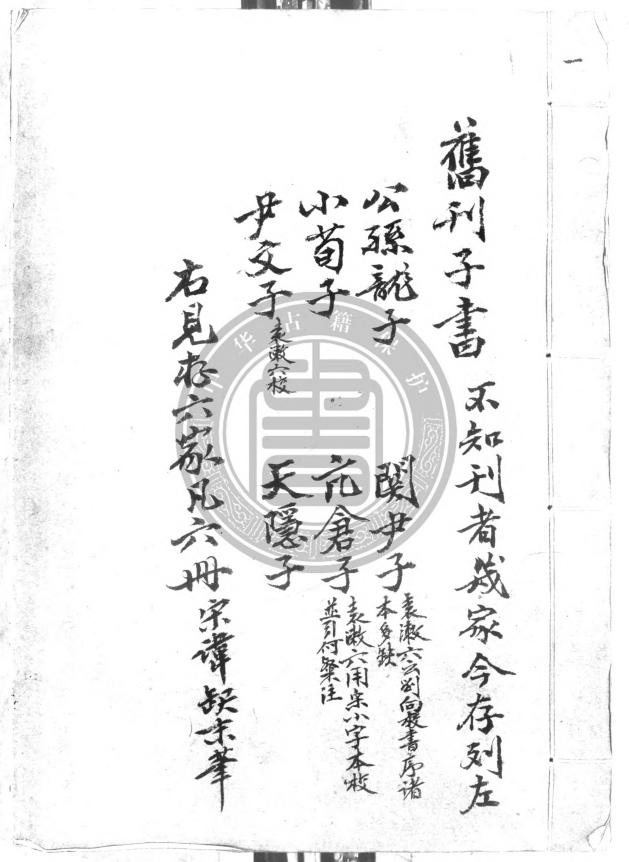 一
舊刊子書 不知刊者幾家今存列左
公孫龍子 関尹子 袁漱六云劉向校書序諸本多缺
小荀子 亢倉子 袁漱六用宋小字本校並引何粲注
尹文子 袁漱六校 天隱子
右見存六家凡六冊宋諱缺末筆
中华古籍保护